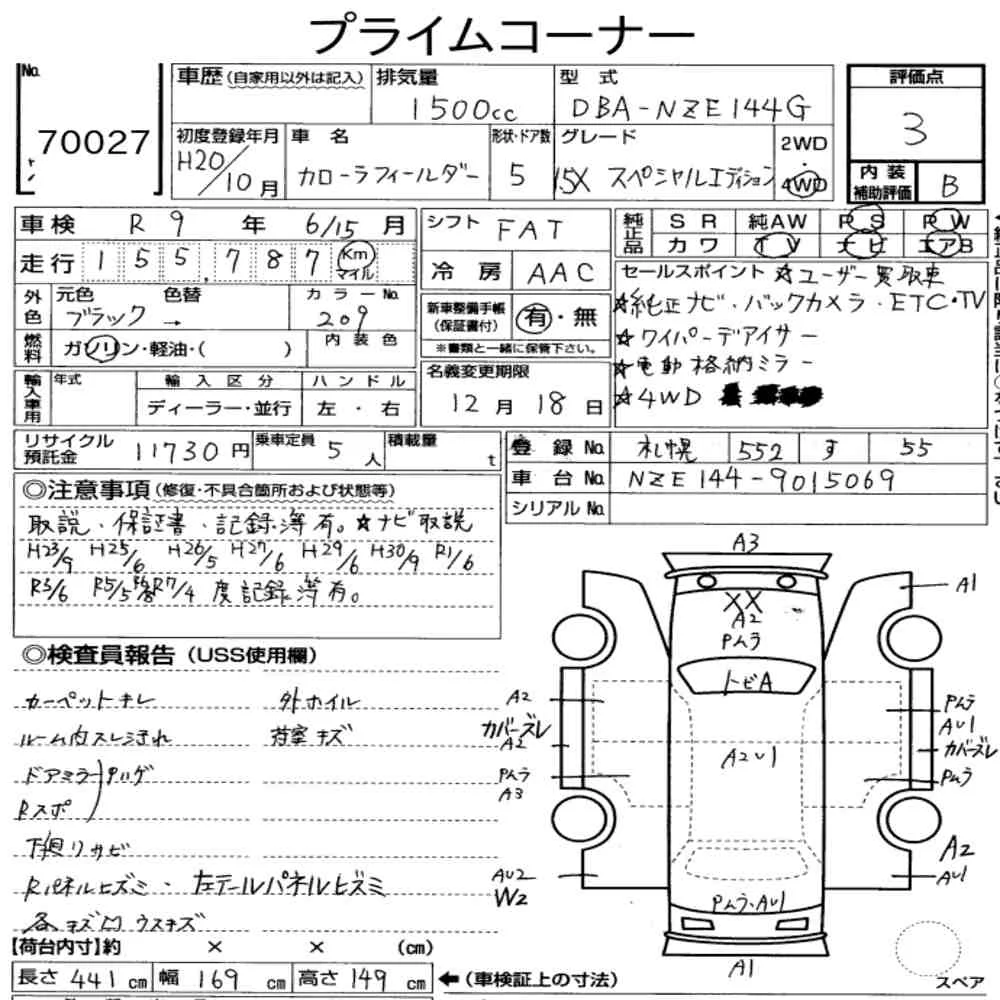 プライムコーナー
No.
70027
車歴 (自家用以外は記入)
排気量
1500cc
型式
DBA-NZE144G
評価点
3
初度登録年月
H20/10月
車名
カローラフィールダー
形状・ドア数
5
グレード
15X スペシャルエディション
2WD
・
4WD
内装
補助評価
B
車検 R9年 6/15月
走行 155,787 Km
マイル
シフト FAT
冷房 AAC
純正品
SR 純AW PS PW
カワ TV ナビ エアB
セールスポイント ☆ユーザー買取車
☆純正ナビ・バックカメラ・ETC・TV
☆ワイパーデアイサー
☆電動格納ミラー
☆4WD
外色
元色 色替
ブラック →
カラーNo.
209
燃料
ガソリン・軽油・( )
内装色
新車整備手帳
(保証書付)
有・無
※書類と一緒に保管下さい。
名義変更期限
12月18日
輸入車用
年式
輸入区分
ディーラー・並行
ハンドル
左・右
リサイクル
預託金
11730円
乗車定員 5人
積載量 t
登録No. 札幌 552 す 55
車台No. NZE144-9015069
シリアルNo.
◎注意事項 (修復・不具合箇所および状態等)
取説・保証書・記録簿有。☆ナビ取説
H23/9 H25/6 H26/5 H27/6 H29/6 H30/9 R1/6
R3/6 R5/5 R6/8 R7/4 度記録簿有。
◎検査員報告 (USS使用欄)
カーペットキレ 外ホイル
ルーム内スレ汚れ 荷室キズ
ドアミラー
Rスポ
下廻りサビ
Rパネルヒズミ・左テールパネルヒズミ
各キズ凹 ウスキズ
A3
XX
A2
Pムラ
トビA
A2U1
Pムラ・AU1
A1
A2
カバーズレ
A2
Pムラ
A3
AU2
W2
A1
Pムラ
AU1
カバーズレ
Pムラ
A2
AU1
スペア
【荷台内寸】約 × × (cm)
長さ 441cm 幅 169cm 高さ 149cm
←(車検証上の寸法)